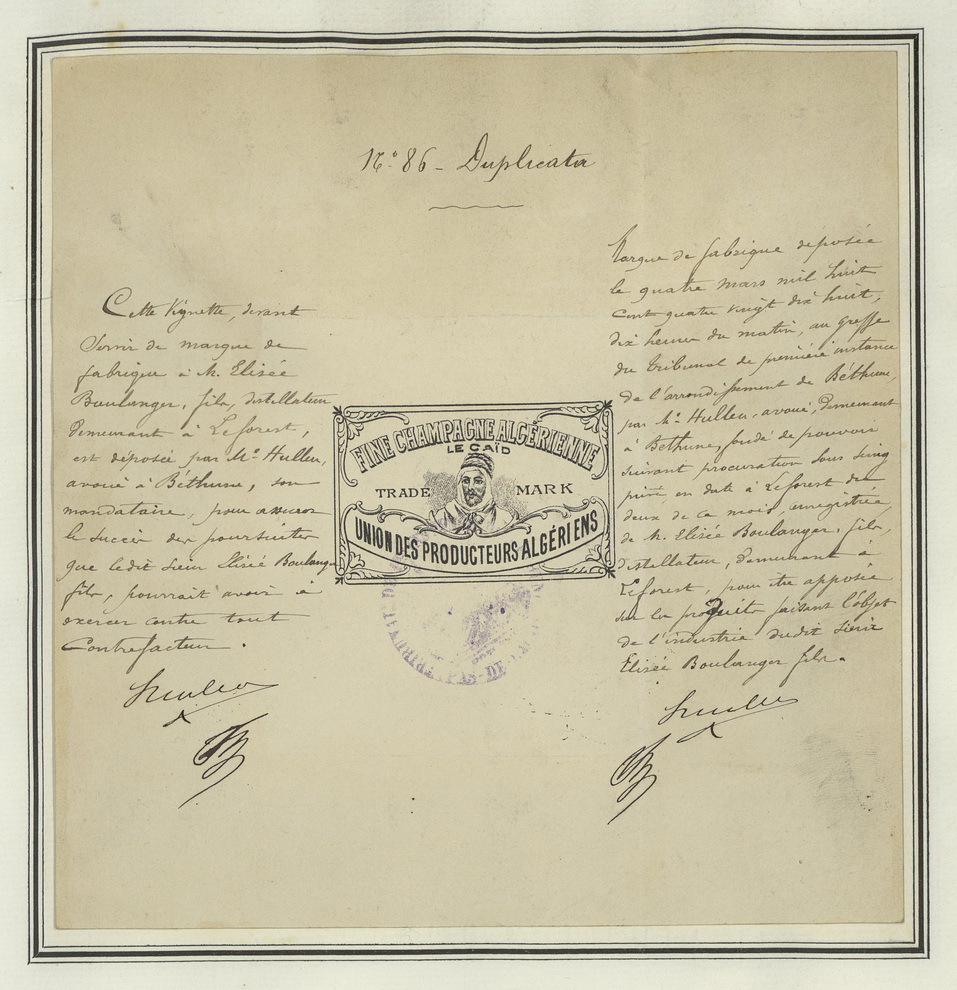 N° 86 - Duplicata
Cette Vignette, devant
Servir de marque de
fabrique à M. Elisée
Boulanger, fils, distillateur
demeurant à Leforest,
est déposée par Me Hulleu,
avoué à Béthune, son
mandataire, pour assurer
le succès des poursuites
que ledit sieur Elisée Boulanger
fils, pourrait avoir à
exercer contre tout
Contrefacteur.
Hulleu
FINE CHAMPAGNE ALGÉRIENNE
LE CAÏD
TRADE MARK
UNION DES PRODUCTEURS ALGÉRIENS
PAS-DE-
Marque de fabrique déposée
le quatre mars mil huit
cent quatre vingt dix huit,
dix heures du matin, au greffe
du tribunal de première instance
de l'arrondissement de Béthune,
par Me Hulleu, avoué, demeurant
à Béthune, fondé de pouvoir
suivant procuration sous seing
privé en date à Leforest du
deux de ce mois, enregistrée,
de M. Elisée Boulanger, fils,
distillateur, demeurant à
Leforest, pour être apposée
sur les produits faisant l'objet
de l'industrie dudit sieur
Elisée Boulanger fils.
Hulleu